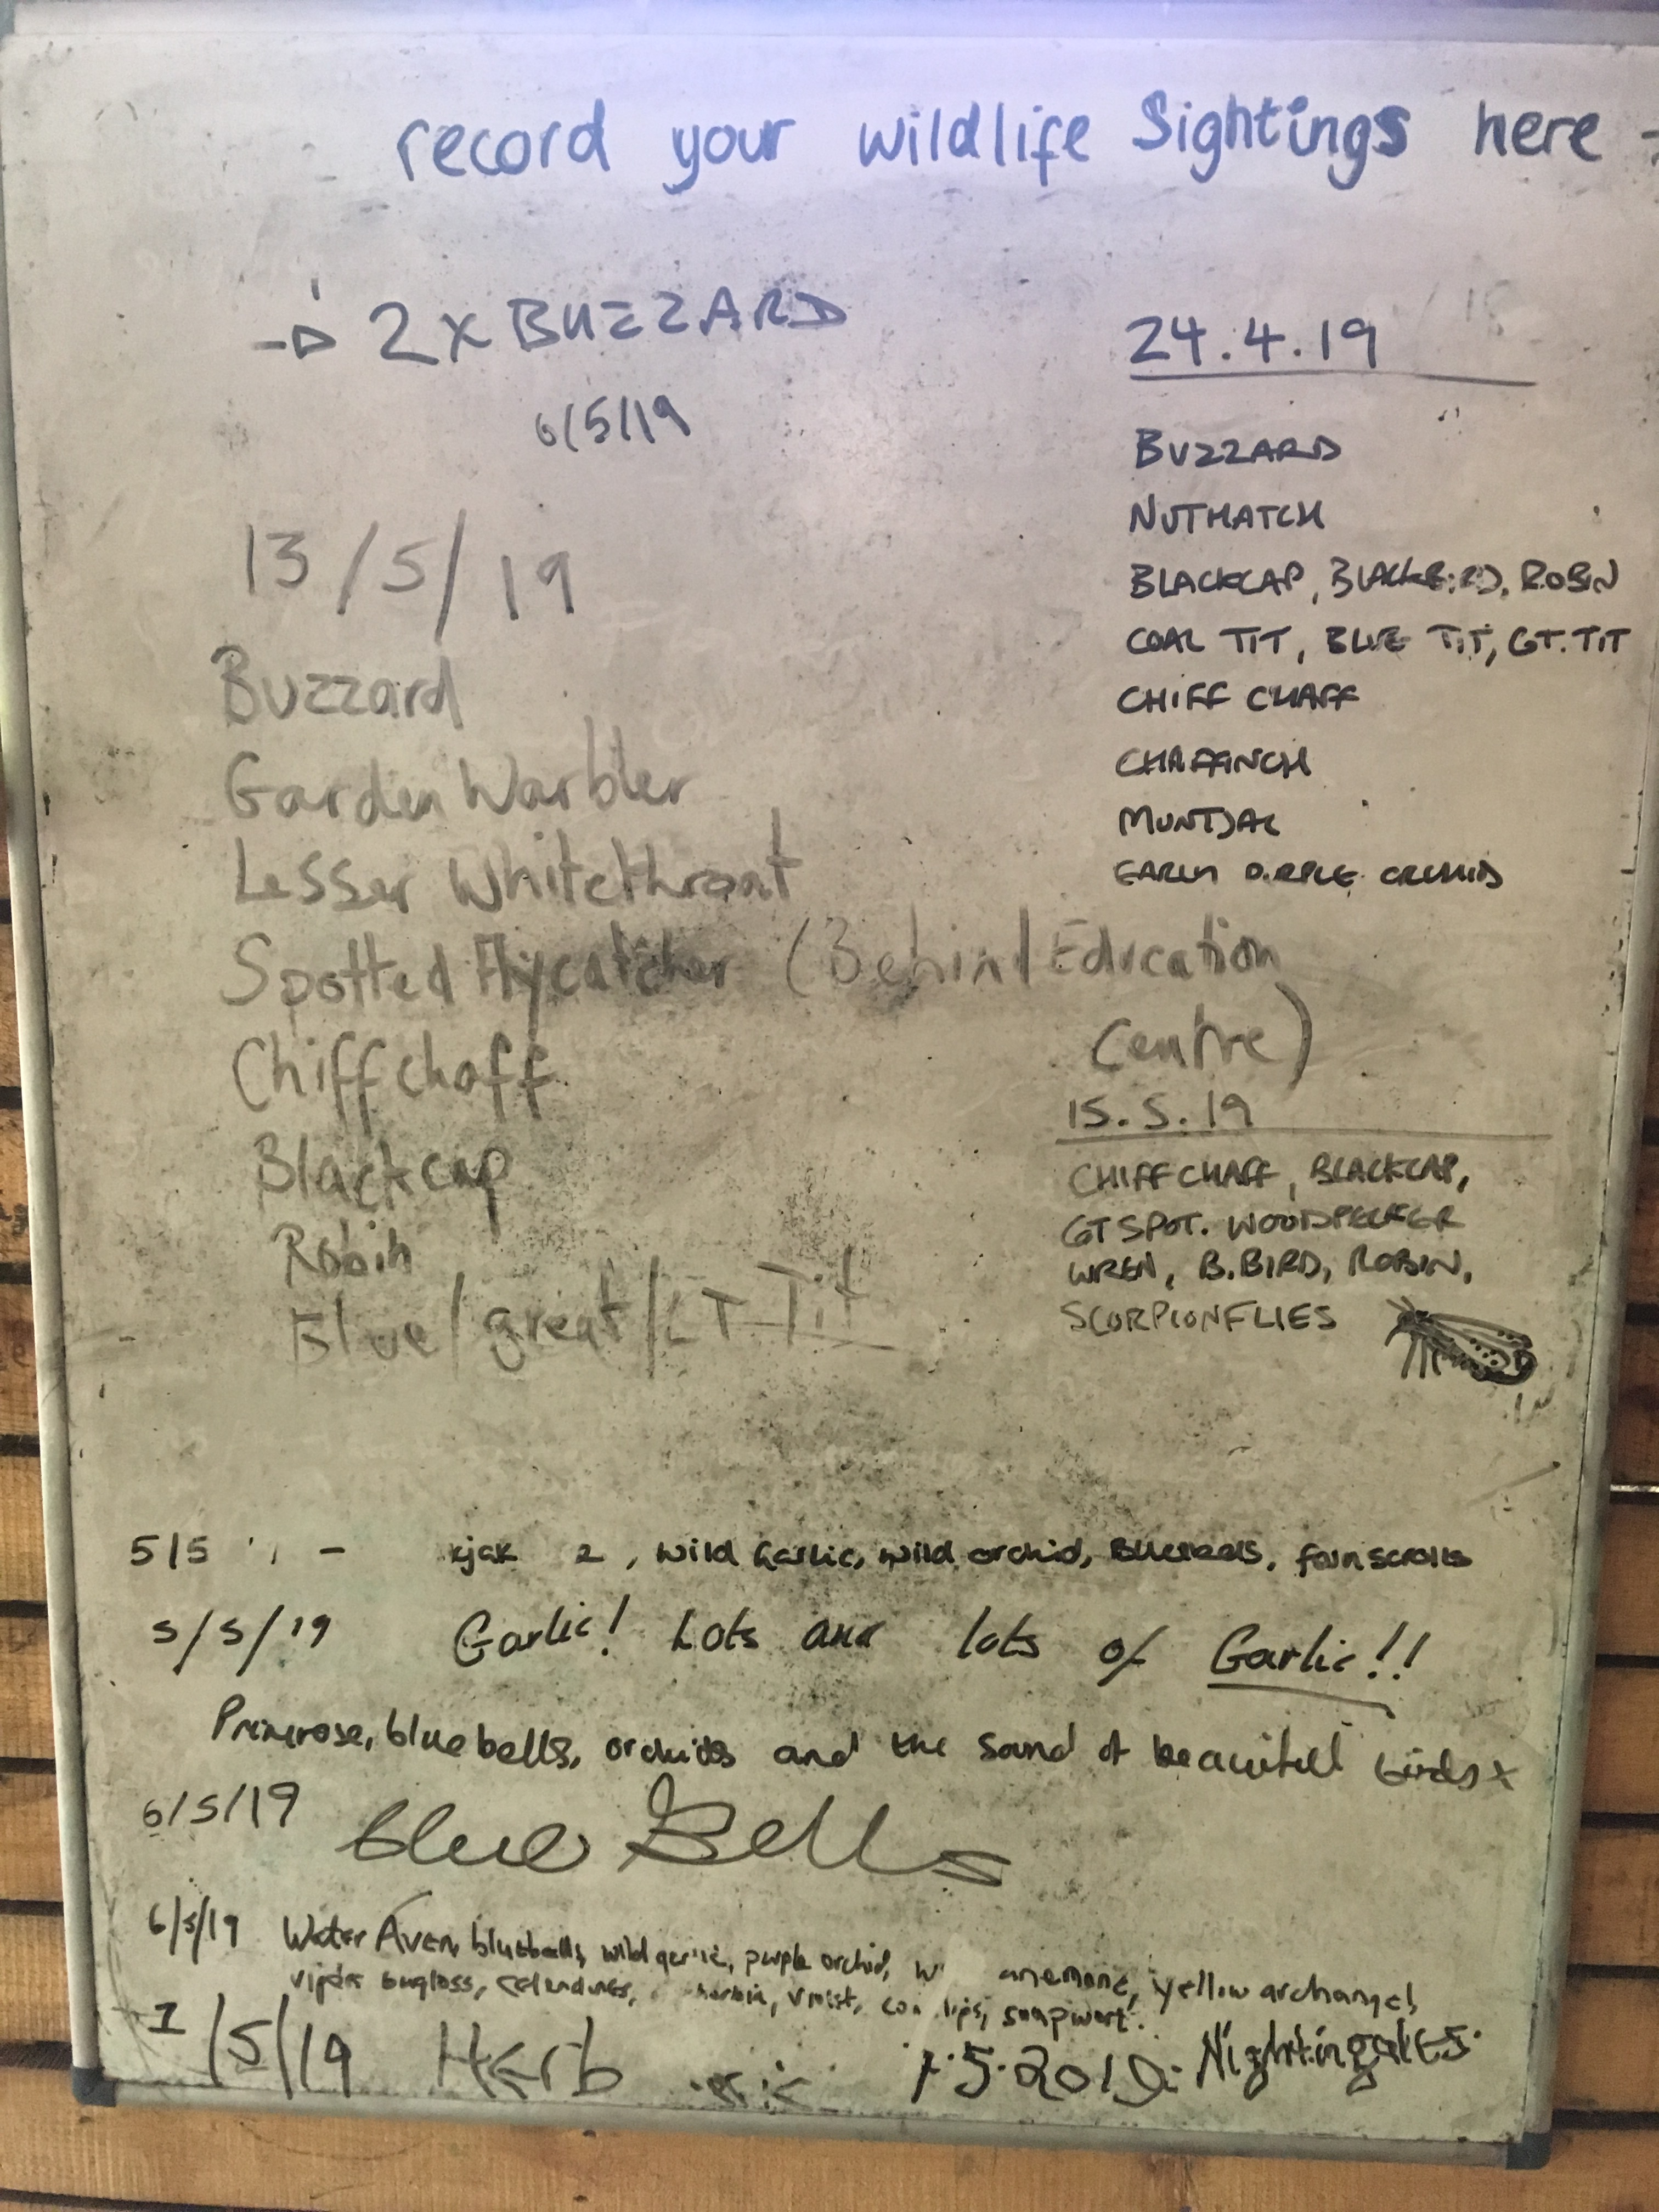 record your wildlife Sightings here
2 x BUZZARD
6/5/19
24.4.19
BUZZARD
NUTHATCH
BLACKCAP, BLACKBIRD, ROBIN
COAL TIT, BLUE TIT, GT. TIT
CHIFF CHAFF
CHAFFINCH
MUNTJAC
EARLY PURPLE ORCHID
13/5/19
Buzzard
Garden Warbler
Lesser Whitethroat
Spotted Flycatcher (Behind Education
Centre)
Chiffchaff
Blackcap
Robin
Blue/great/LT Tit
15.5.19
CHIFFCHAFF, BLACKCAP,
GT SPOT. WOODPECKER
WREN, B.BIRD, ROBIN,
SCORPIONFLIES
5/5 - 2, wild Garlic, wild orchid, Bluebells,
5/5/19 Garlic! Lots and lots of Garlic!!
Primrose, bluebells, orchids and the sound of beautiful birds x
6/5/19 blue Bells
6/5/19 Water Aven, bluebells, wild garlic, purple orchid, anemone, yellow archangel,
viper bugloss, soapwort.
1/5/19 Herb
5.2019: NightingalES.